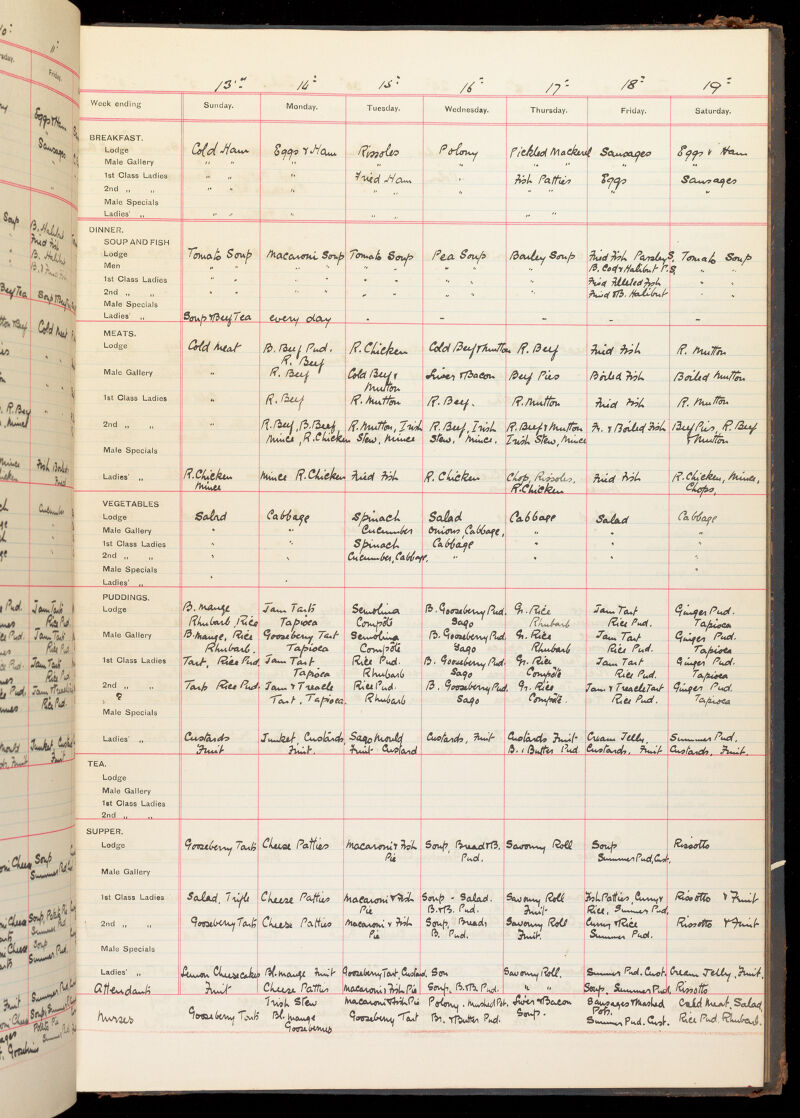 13th 14th 15th 16th 17th 18th 19th
Week ending Sunday. Monday. Tuesday. Wednesday. Thursday. Friday. Saturday.
BREAKFAST.
Lodge Cold Ham Eggs & Ham Rissoles Polony Pickled Mackerel Sausages Eggs & Ham
Male Gallery " " " " " " "
1st Class Ladies " " " Fried Ham " Fish Patties Eggs Sausages
2nd " " " " " " " " " " "
Male Specials
Ladies' " " " " " " " "
DINNER.
SOUP AND FISH
Lodge Tomato Soup Macaroni Soup Tomato Soup Pea Soup Barley Soup Fried Fish Parsley S. Tomato Soup
Men " " " " " " " " " B. Cod & Halibut P.S. " "
1st Class Ladies " " " " " " " " " Fried Filleted Fish " "
2nd " " " " " " " " " " " Fried & B. Halibut " "
Male Specials
Ladies' " Soup & Beef Tea every day - - - - -
MEATS.
Lodge Cold Meat B. Beef Pud. R. Chicken Cold Beef & Mutton R. Beef Fried Fish R. Mutton
R. Beef
Male Gallery " R. Beef Cold Beef & Liver & Bacon Beef Pies Boiled Fish Boiled Mutton
Mutton
1st Class Ladies " R. Beef R. Mutton R. Beef. R. Mutton Fried Fish R. Mutton
2nd " " " R. Beef, B. Beef, R. Mutton, Irish R. Beef, Irish R. Beef & Mutton Fr. & Boiled Fish Beef Pies, R. Beef
Mince, R. Chicken Stew, Mince Stew, Mince. Irish Stew, Mince & Mutton
Male Specials
Ladies' " R. Chicken Mince R. Chicken Fried Fish R. Chicken Chop, Rissoles, Fried Fish R. Chicken, Mince,
Mince R. Chicken Chops,
VEGETABLES
Lodge Salad Cabbage Spinach Salad Cabbage Salad Cabbage
Male Gallery " " Cucumber Onions, Cabbage, " " "
1st Class Ladies " " Spinach Cabbage " " "
2nd " " " " Cucumber, Cabbage, " " " "
Male Specials "
Ladies' " " "
PUDDINGS.
Lodge B. Mange Jam Tarts Semolina B. Gooseberry Pud. Gr. Rice Jam Tart Ginger Pud.
Rhubarb, Rice Tapioca Compôte Sago Rhubarb Rice Pud. Tapioca
Male Gallery B. Mange, Rice Gooseberry Tart Semolina B. Gooseberry Pud. Gr. Rice Jam Tart Ginger Pud.
Rhubarb. Tapioca Compôte Sago Rhubarb Rice Pud. Tapioca
1st Class Ladies Tart, Rice Pud. Jam Tart Rice Pud. B. Gooseberry Pud. Gr. Rice Jam Tart Ginger Pud.
Tapioca Rhubarb Sago Compôte Rice Pud. Tapioca
2nd " " Tarts Rice Pud. Jam & Treacle Rice Pud. B. Gooseberry Pud. Gr. Rice Jam & Treacle Tart Ginger Pud.
? Tart, Tapioca. Rhubarb Sago Compôte. Rice Pud. Tapioca
Male Specials
Ladies' " Custards Junket, Custards, Sago Mould Custards, Fruit Custards Fruit Cream Jelly, Summer Pud.
Fruit Fruit. Fruit Custard B. & Butter Pud Custards, Fruit Custards, Fruit.
TEA.
Lodge
Male Gallery
1st Class Ladies
2nd " "
SUPPER.
Lodge Gooseberry Tarts Cheese Patties Macaroni & Fish Soup, Bread & B. Savoury Roll Soup Rissotto
Pie Pud. Summer Pud, Cust.
Male Gallery
1st Class Ladies Salad, Trifle Cheese Patties Macaroni & Fish Soup - Salad. Savoury Roll Fish Patties, Curry & Rissotto & Fruit
Pie B. & B. Pud. Fruit Rice, Summer Pud,
2nd " " Gooseberry Tarts Cheese Patties Macaroni & Fish Soup, Bread & Savoury Roll Curry & Rice Rissotto & Fruit
Pie B. Pud. Fruit. Summer Pud.
Male Specials
Ladies' " Lemon Cheesecakes Bl. Mange Fruit Gooseberry Tart, Custard. Savoury Roll. Summer Pud. Cust. Cream Jelly, Fruit.
Attendants Fruit Cheese Patties Macaroni & Fish Pie Soup, B. & B. Pud. " " Soup, Summer Pud. Rissotto
Irish Stew Macaroni & Fish Pie Polony, Mashed Pot. Liver & Bacon Sausages & Mashed Cold Meat, Salad
Nurses Gooseberry Tarts Bl. Mange Gooseberry Tart Br. & Butter Pud. Soup. Pots. Rice Pud. Rhubarb.
Gooseberries Summer Pud. Cust.